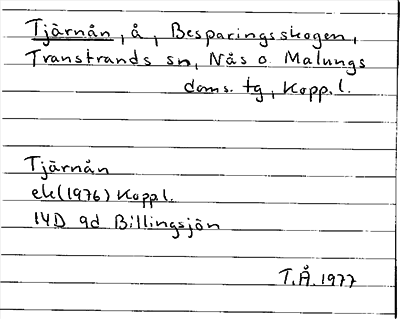 Tjärnån, å, Besparingsskogen,
Transtrands sn, Nås o Malungs
doms. tg, Kopp.l.
Tjärnån
ek(1976) Koppl.
14D 9d Billingsjön
T.Å.1977